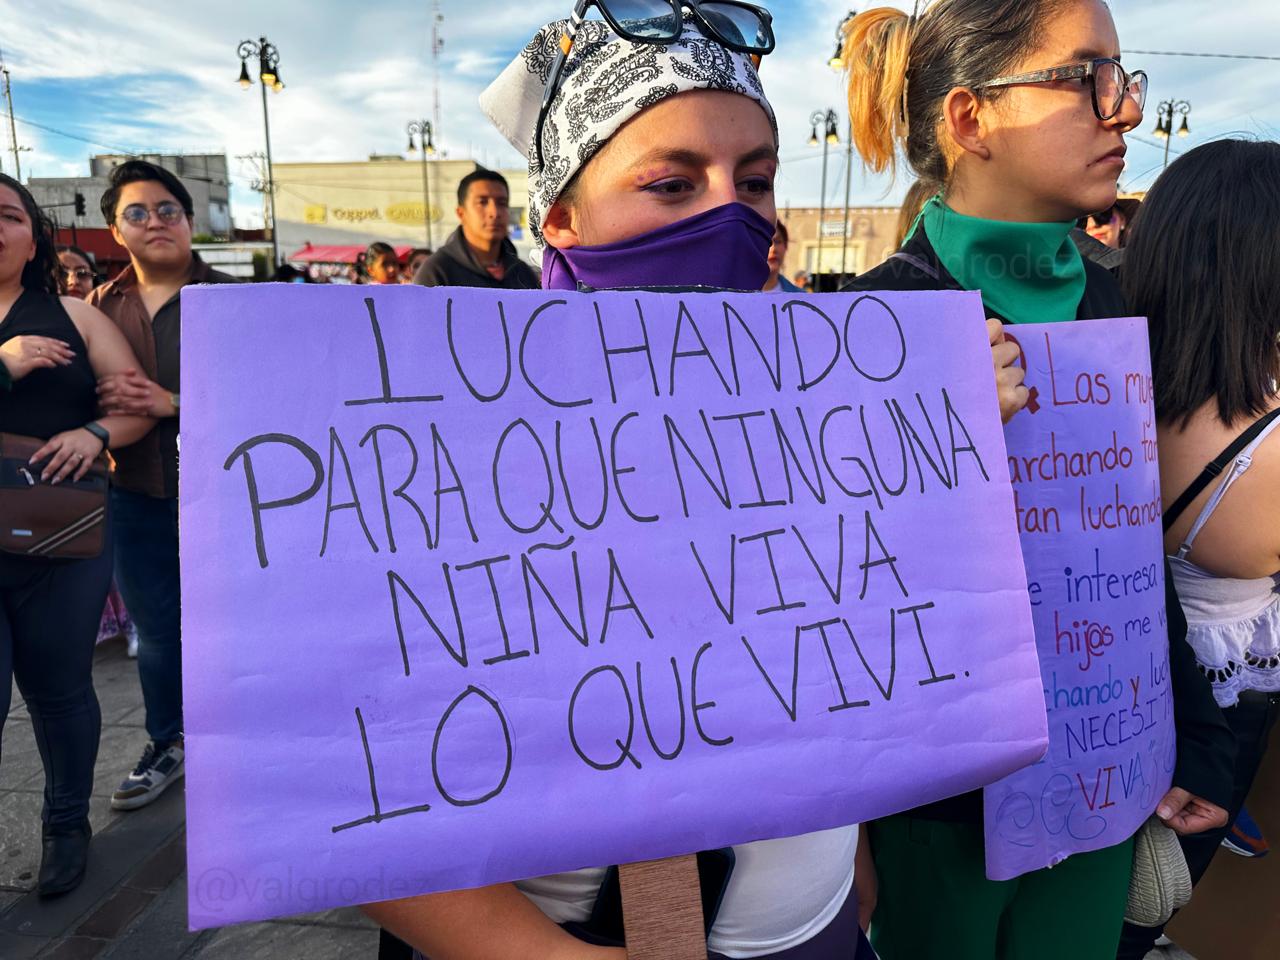 LUCHANDO
PARA QUE NINGUNA
NIÑA VIVA
LO QUE VIVI.
Las
archando
tan luchando
e interesa
hij@s me
chando y
NECESIT
VIVA"
Coppel
@valgrodez
@valgrodez